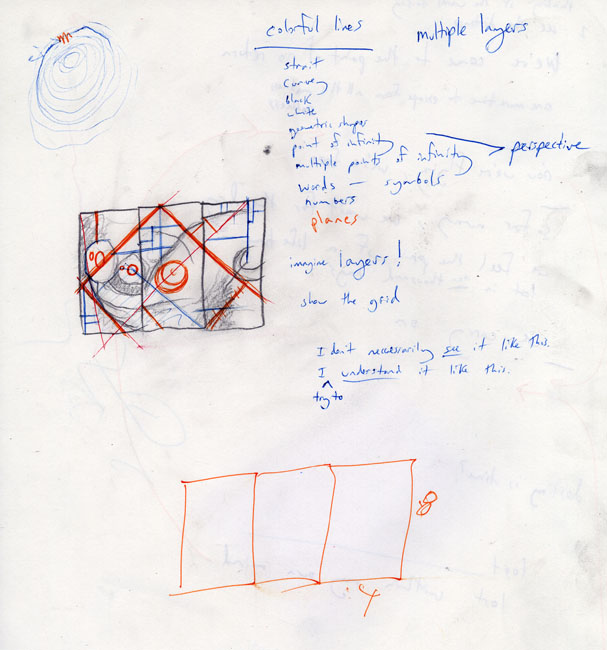 colorful lines
multiple layers
strait
curvey
black
white
geometric shapes
point of infinity
multiple points of infinity
perspective
words — symbols
numbers
planes
imagine layers!
show the grid
I don't neccessarily see it like this.
I understand it like this.
try to
8
4